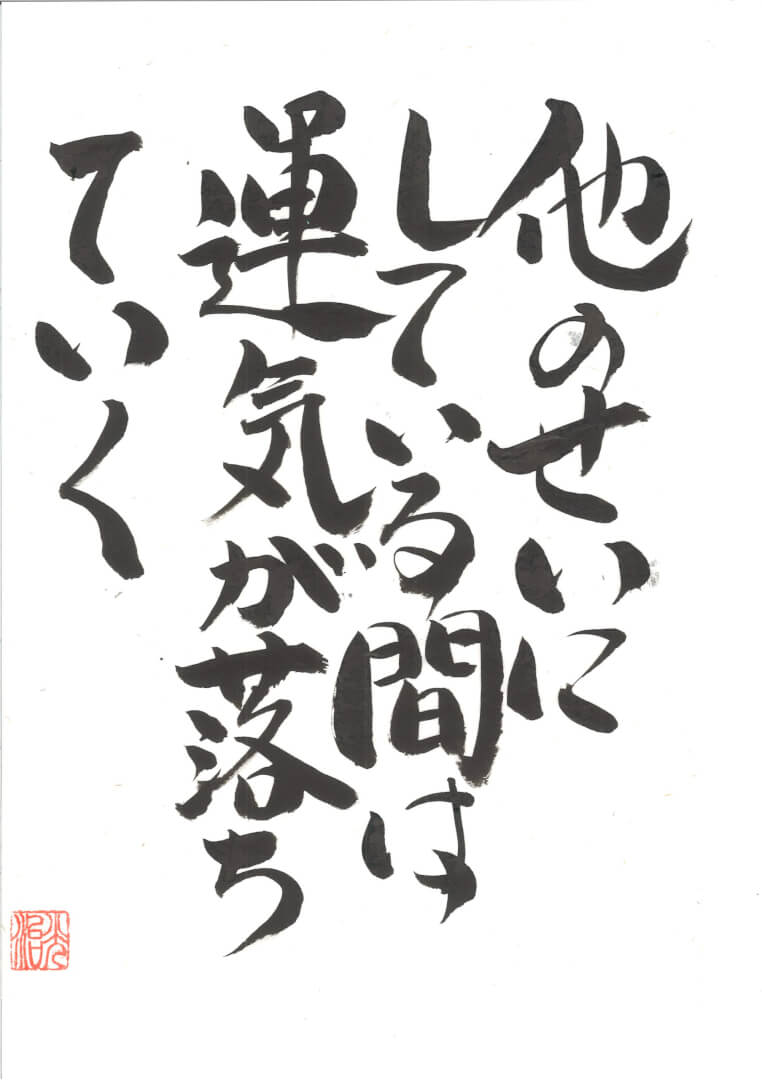 他のせいに
している間は
運気が落ち
ていく